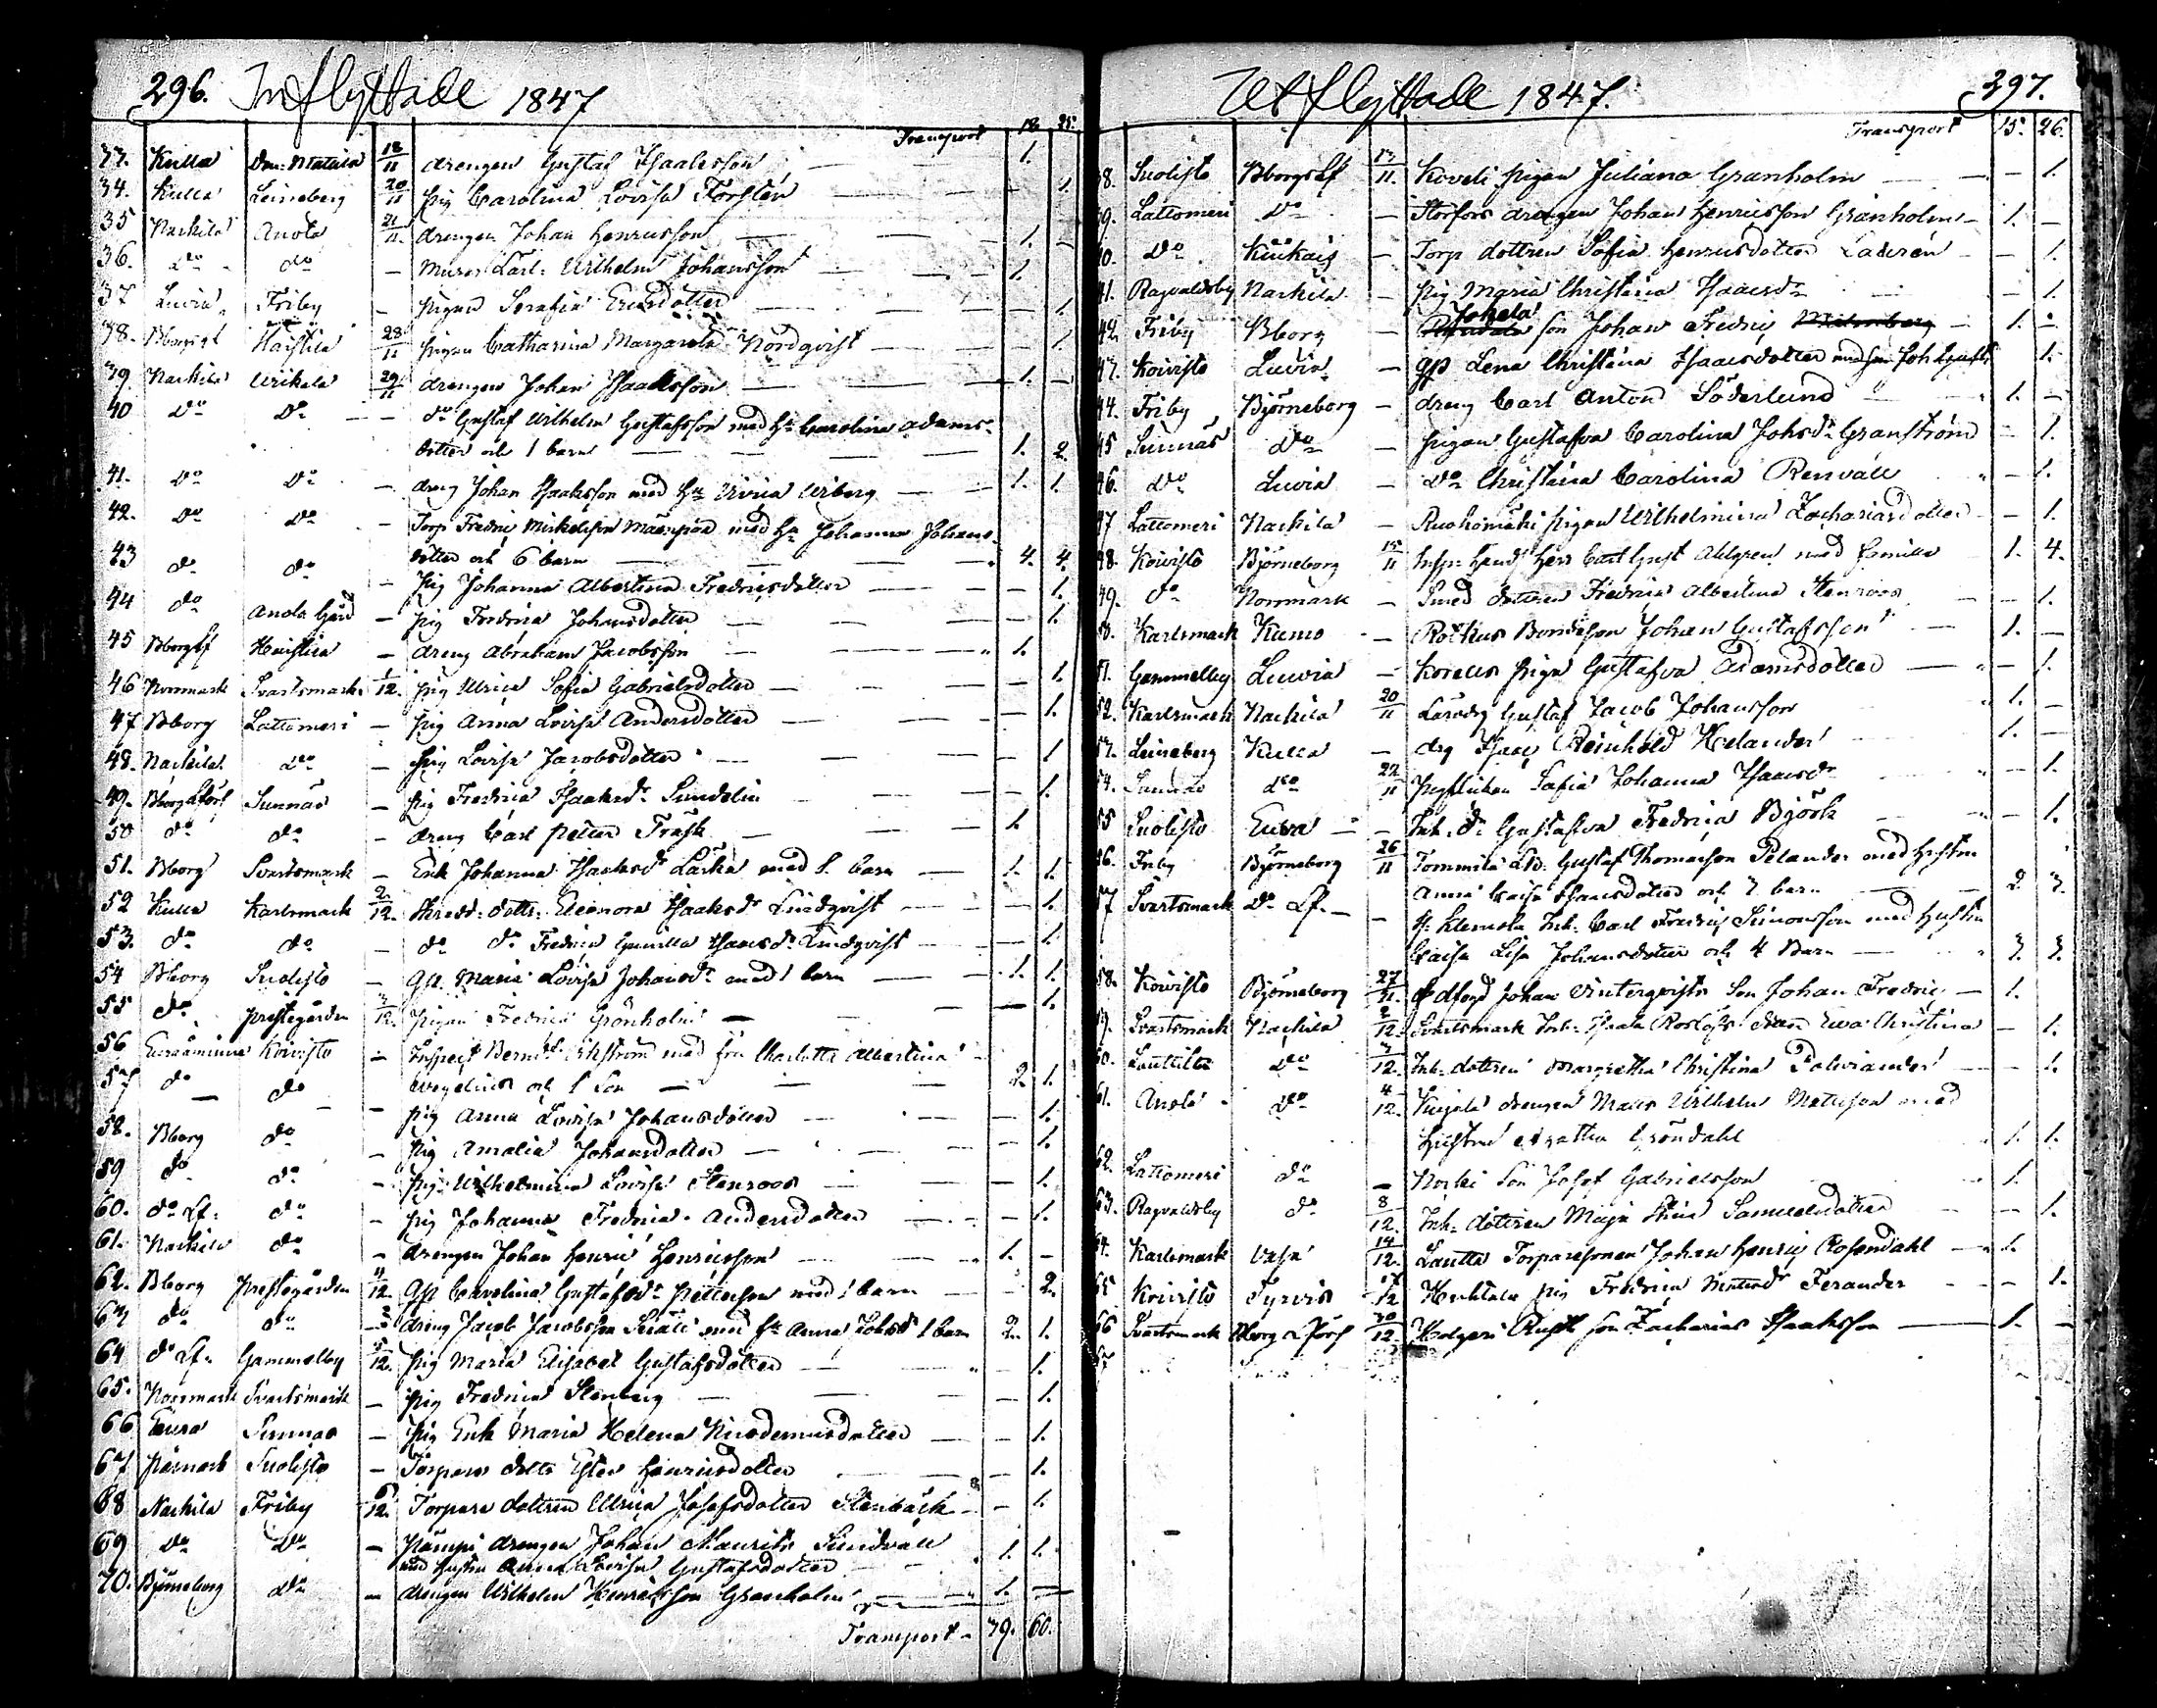 296. Inflyttade 1847
Transport 18. 25.
33. Kulla 18/11 drengen Gustaf Isaaksson — 1.
34. Kulla Leineberg 20/11 pig Carolina Lovisa Forsten — 1.
35 Nackila Anola 21/11 drengen Johan Henricsson — 1. —
36. do do — Carl Wilhelm Johansson — 1.
37 Luvia Friby — pigan Serafia Ericsdotter — 1.
38. Haistila 28/11 pigan Catharina Margareta Nordqvist — 1.
39. Nackila 29/11 drengen Johan Isaaksson — 1. —
40 do do — do Gustaf Wilhelm Gustafsson med H: Carolina Adams-
dotter och 1 barn — 1. 2.
41. do do — dreng Johan Isaaksson med H: Wiberg — 1. 1.
42. do do — Torp: Fredric med H: Johanna Johans-
dotter och 6 barn — 4. 4.
43 do do — pig Johanna Albertina Fredricsdotter — 1.
44 do Anola Gård — pig Fredrica Johansdotter — 1.
45 Haistila — dreng Abraham Jacobsson — 1.
46 Norrmark Svartsmark 1/12. pig Ulrica Sofia Gabrielsdotter — 1.
47 Bborg Lattomeri — pig Anna Lovisa Andersdotter — 1.
48. Nackila do — pig Lovisa Jacobsdotter — 1
49. Sunnäs — pig Fredrica Isaaksdr Sundelin — 1.
50 do do — dreng Carl Petter Träsk — 1.
51. Bborg Svartsmark — Enk Johanna Isaaksd. Lärka med 1. barn — 1. 1.
52 Kulla Karlsmark 2/12. Skredd: dottr: Eleonora Isaaksdr Lindqvist — 1.
53. do do — do do Fredrica Gunilla Isaacsdr Lindqvist — 1.
54 Bborg Suolisto — Gst. Maria Lovisa Johansdr med 1 barn — 1. 1.
55 do prestgården 3/12. pigan Fredrica Grönholm — 1.
56 Euraåminne Koivisto — Inspect Bernd: med fru Charlotta Albertina
och 1 Son — 2. 1.
57 do do — pig Anna Lovisa Johansdotter — 1.
58. Bborg do — pig Amalia Johansdotter — 1.
59 do do — pig Wilhelmina Lovisa Stenroos — 1.
60. do Lf: do — pig Johanna Fredrica Andersdotter — 1.
61. Nackila do — drengen Johan Henric Henricsson — 1. —
62. Bborg Prestegården 4/12 Gst Carolina Gustafsdr Pettersson med 1 barn — 2.
63 do do — dreng Jacob Jacobsson med H: Anna Johsdr 1 barn 2. 1.
64 do Lf: Gammelby 5/12. pig Maria Elisabet Gustafsdotter — 1.
65. Norrmark Svartsmark — pig Fredrica Stenberg — 1.
66 Eura Sunnäs — pig Enk Maria Helena Nicodemusdotter — 1.
67 Påmark Suolisto — Torpare dottr Ester Henricsdotter — 1.
68 Nackila Friby 6/12. Torpare dottren Ulrica Josefsdotter Stenbäck — 1.
69 do do — drengen Johan Maurits Sundvall
med hustru Anna Lovisa Gustafsdotter — 1. 1.
70. Björneborg do — drengen Wilhelm Henricsson Granholm — 1. —
Transport — 79. 60.
Utflyttade 1847. 297.
Transport 15. 26.
38. Suolisto 13/11. Koveli pigan Juliana Granholm — 1.
39. Lattomeri do — Storfors drengen Johan Henricsson Granholm — 1. —
40. do — Torp dottren Sofia Henricsdotter — 1.
41. Ragvaldsby Nackila — pig Maria Christina Isaacsdr — 1.
Jokela
42. Friby Bborg — son Johan Fredric — 1. —
43. Koivisto Luvia — Gst Lena Christina Isaacsdotter med son Joh Gust: 1.
44. Friby Björneborg — dreng Carl Anton Söderlund — 1. —
45 Sunnäs do — pigan Gustafva Carolina Johsdr Granström — 1.
46. do Luvia — do Christina Carolina Renvall — 1.
47 Lattomeri Nackila — Ruohomäki pigan Wilhelmina Zachariasdotter — 1.
48. Koivisto Björneborg 15/11 Herr Carl Gust Ahlgren med familie 1. 4.
49. do Norrmark — Smed dottren Fredrica Albertina Stenroos — 1.
50. Karlsmark Kumo — Rotkus Bondeson Johan Gustafsson — 1. —
51. Gammelby Luvia — pigan Gustafva Adamsdotter — 1.
52. Karlsmark Nackila 20/11 Gustaf Jacob Johansson 1. —
53. Leineberg Kulla — drg Isaac Reinhold Helander 1. —
54. Sunnäs do 22/11 Sofia Johanna Isaacsdr — 1.
55 Suolisto Eura — Inh: dr Gustafva Fredrica Björk — 1.
56. Friby Björneborg 26/11 Tommila Gustaf Thomasson Pelander med hustru
Anna Caisa Hansdotter och 3 barn — 2 3.
57 Svartsmark do Lf. — Inh: Carl Fredric Simonsson med hustru
Caisa Lisa Johansdotter och 4 Barn — 3. 3.
58. Koivisto Björneborg 27/11. Johan Vinterqvists Son Johan Fredric — 1.
59. Svartsmark Nackila 2/12. Svartsmark Inh: Isaak Eva Christina — 1.
60. do 3/12. Inh: dottren Margretha Christina — 1.
61. Anola do 4/12. drengen Matts Wilhelm Mattsson med
hustru Agatha Gröndahl 1. 1.
62. Lattomeri do — Son Josef Gabrielsson 1.
63. Ragvaldsby do 8/12. Inh: dottren Maja Stina Samuelsdotter — 1.
64. Karlsmark Vasa 14/12. Lautta Torparesonen Johan Henric Rosendahl — 1.
65 Koivisto Tyrvis 17/12 pig Fredrica Ferander — 1.
66 Svartsmark Bborg 30/12. son Zacharias Isaaksson — 1. —
67